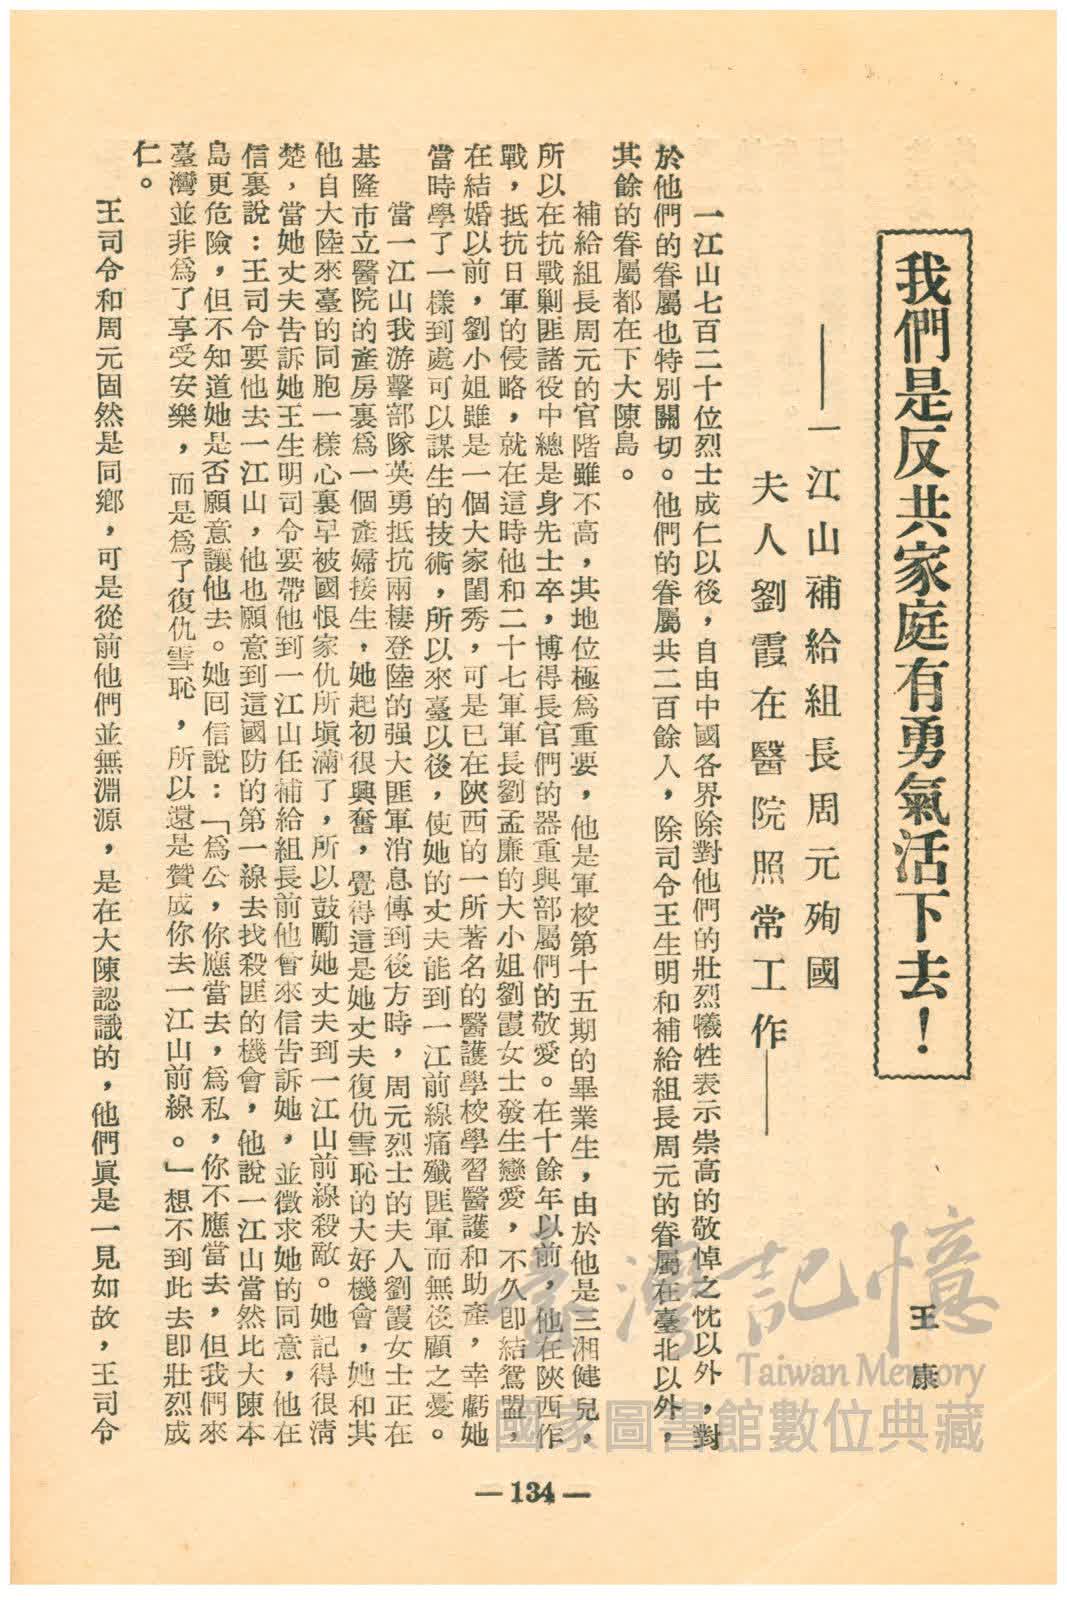 我們是反共家庭有勇氣活下去！
王康
——一江山補給組長周元殉國
夫人劉霞在醫院照常工作——
一江山七百二十位烈士成仁以後，自由中國各界除對他們的壯烈犧牲表示崇高的敬悼之忱以外，對
於他們的眷屬也特別關切。他們的眷屬共二百餘人，除司令王生明和補給組長周元的眷屬在臺北以外，
其餘的眷屬都在下大陳島。
補給組長周元的官階雖不高，其地位極為重要，他是軍校第十五期的畢業生，由於他是三湘健兒，
所以在抗戰剿匪諸役中總是身先士卒，博得長官們的器重與部屬們的敬愛。在十餘年以前，他在陝西作
戰，抵抗日軍的侵略，就在這時他和二十七軍軍長劉孟廉的大小姐劉霞女士發生戀愛，不久卽結鴛盟，
在結婚以前，劉小姐雖是一個大家閨秀，可是已在陝西的一所著名的醫護學校學習醫護和助產，幸虧她
當時學了一樣到處可以謀生的技術，所以來臺以後，使她的丈夫能到一江前線痛殲匪軍而無後顧之憂。
當一江山我游擊部隊英勇抵抗兩棲登陸的强大匪軍消息傳到後方時，周元烈士的夫人劉霞女士正在
基隆市立醫院的產房裏爲一個產婦接生，她起初很興奮，覺得這是她丈夫復仇雪恥的大好機會，她和其
他自大陸來臺的同胞一樣心裏早被國恨家仇所塡滿了，所以鼓勵她丈夫到一江山前線殺敵。她記得很清
楚，當她丈夫告訴她王生明司令要帶他到一江山任補給組長前他曾來信告訴她，並徵求她的同意，他在
信裏說：王司令要他去一江山，他也願意到這國防的第一線去找殺匪的機會，他說一江山當然比大陳本
島更危險，但不知道她是否願意讓他去。她回信說：「爲公，你應當去，爲私，你不應當去，但我們來
臺灣並非爲了享受安樂，而是爲了復仇雪恥，所以還是贊成你去一江山前線。」想不到此去卽壯烈成
仁。
王司令和周元固然是同鄉，可是從前他們並無淵源，是在大陳認識的，他們眞是一見如故，王司令
—134—
臺灣記憶
Taiwan Memory
國家圖書館數位典藏